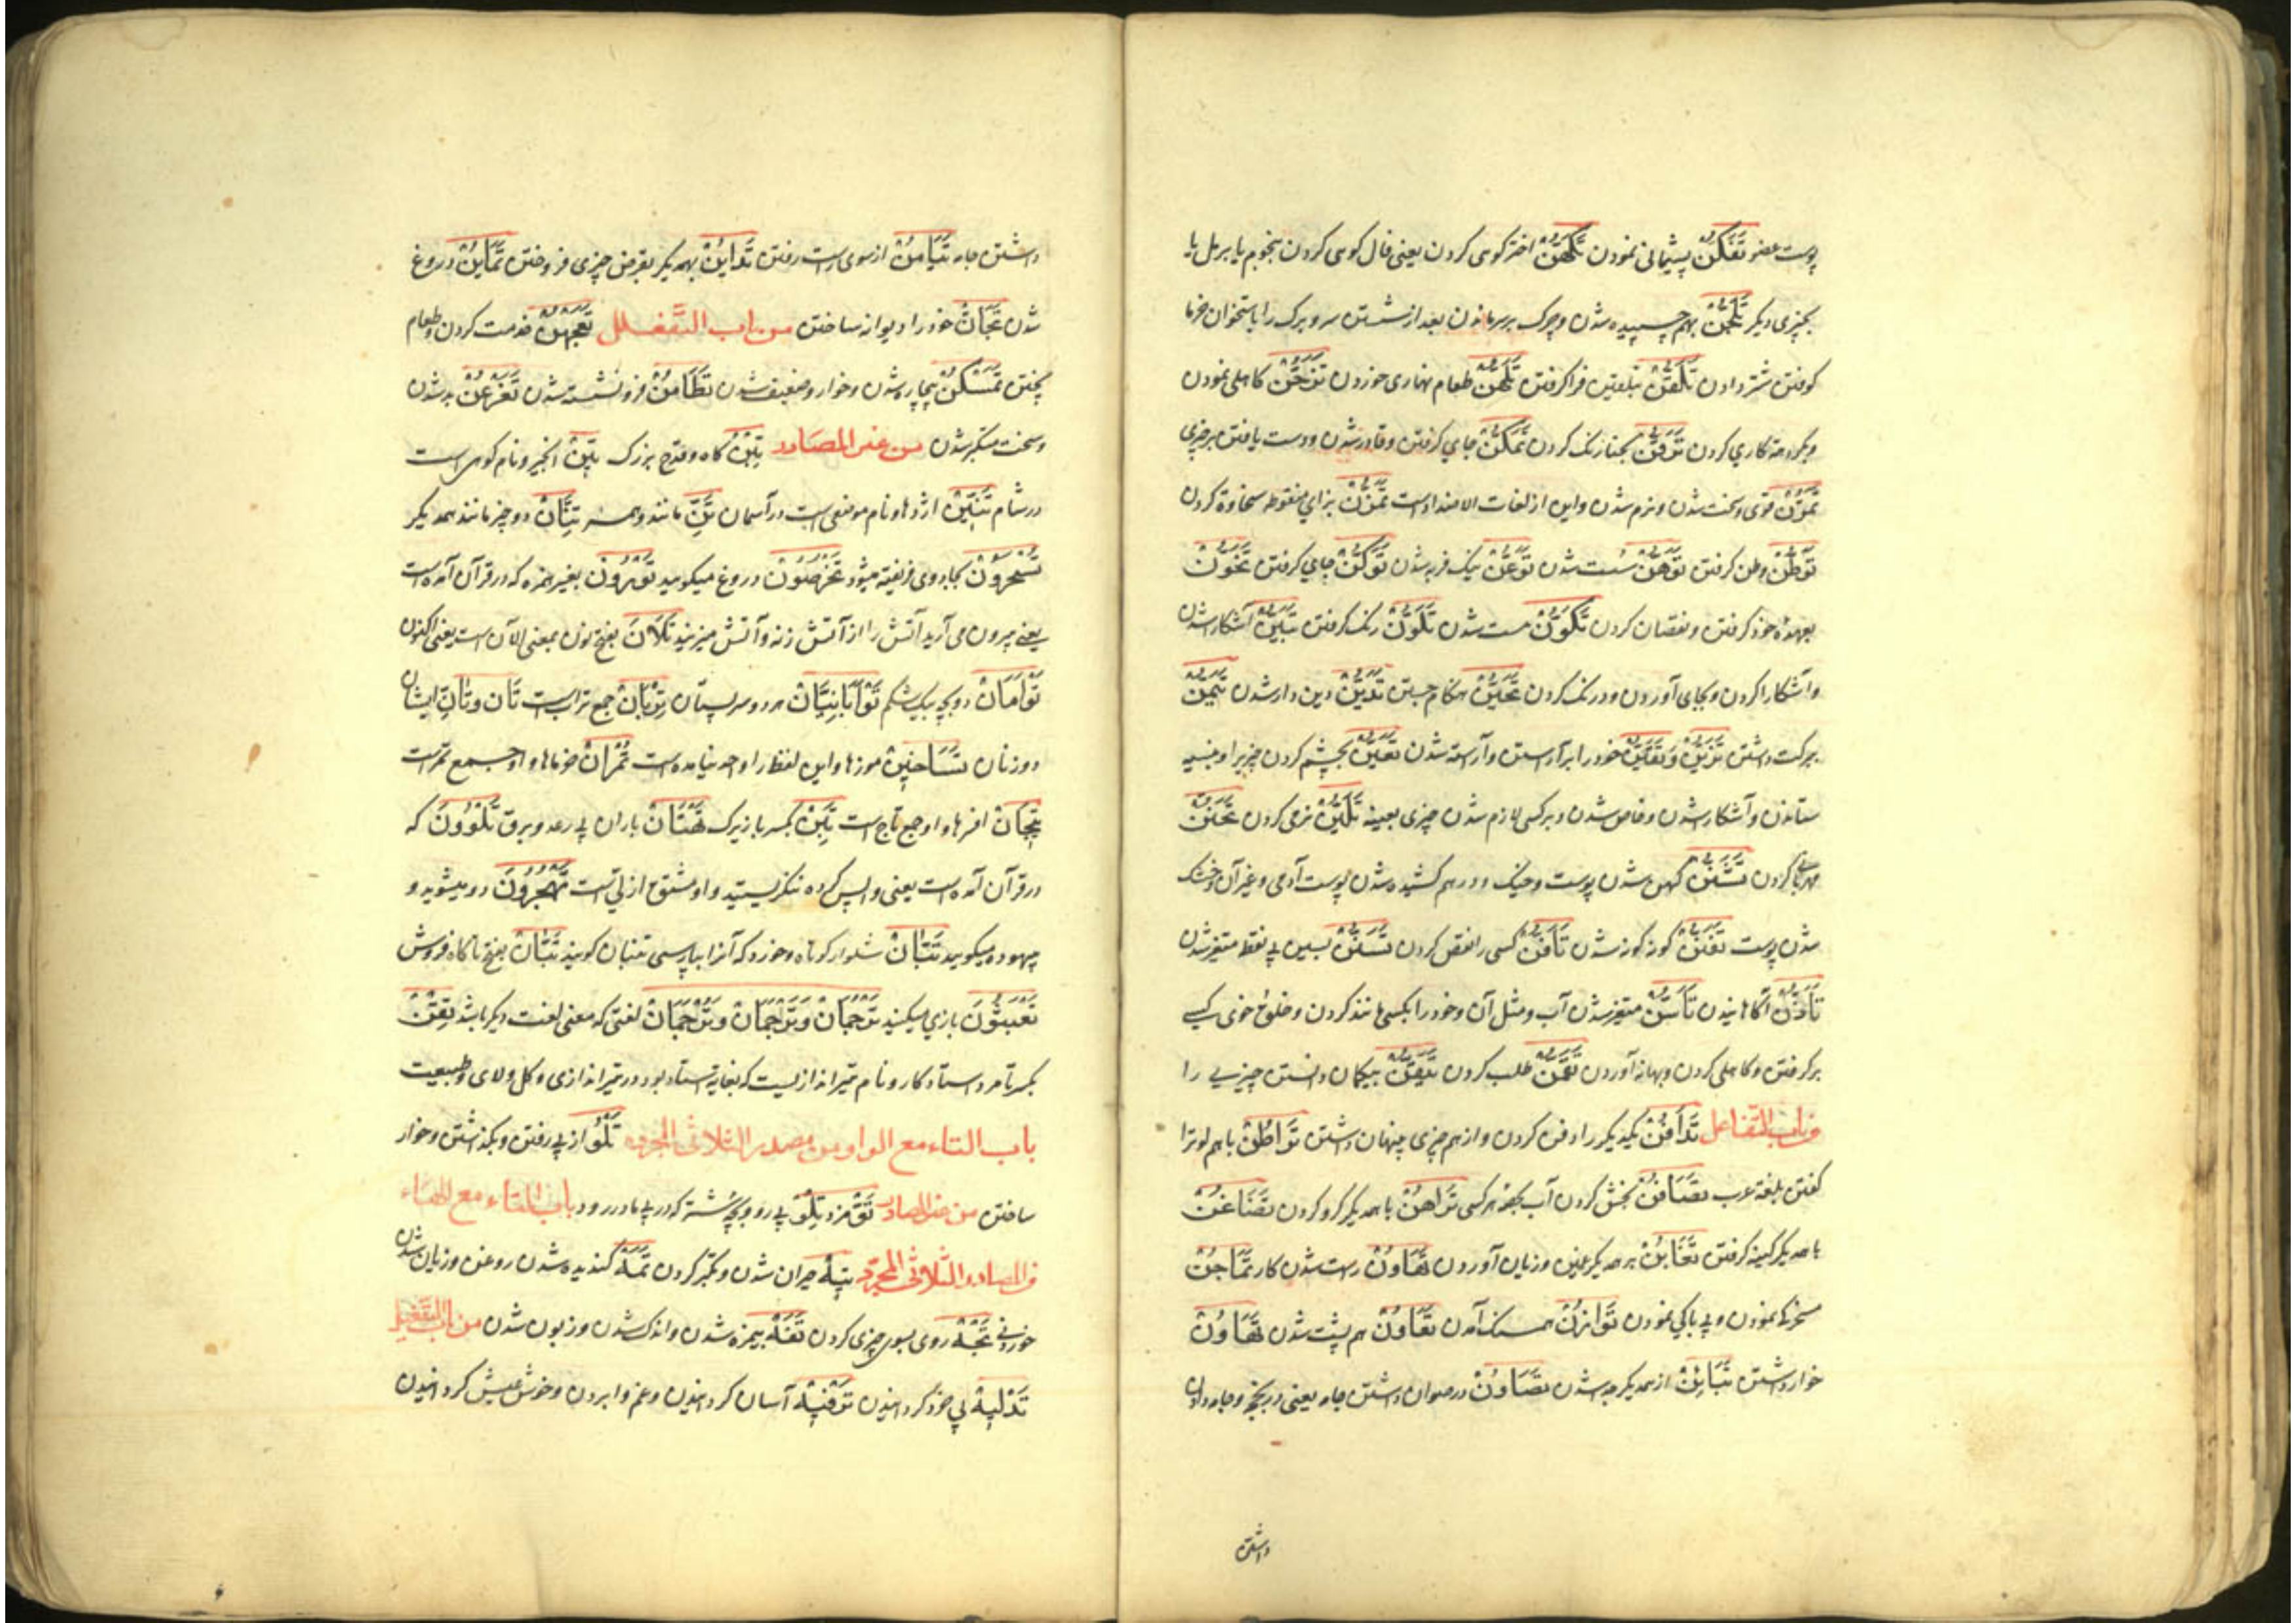 پوست عضو تَفَكُّنْ پشیمانی نمودن تَكَهُّنْ اختر کوی کردن یعنی فال کوی کردن بنجوم یا برمل یا
بچیزی دیگر تَلَجُّنْ بهم چسپیده شدن و چرک بر سر ماندن بعد از شستن سر و برک را با استخوان خرما
کوفتن شتر دادن تَلَقُّنْ بتلقین فرا گرفتن تَلَهُّنْ طعام نهاری خوردن کاهلی نمودن
کاری کردن جای گرفتن و قادر شدن و دست یافتن بر چیزی
تَمَرُّنْ قوی و سخت شدن و نرم شدن و این از لغات الاضداد است تَمَزُّنْ بزای منقوطه سخاوة کردن
تَوَطُّنْ وطن گرفتن تَوَهُّنْ سست شدن تَوَعُّنْ نیک فربه شدن تَوَكُّنْ جای گرفتن تَخَوُّنْ
بعهده خود گرفتن و نقصان کردن تَكَوُّنْ هست شدن تَلَوُّنْ رنک گرفتن تَبَيُّنْ آشکارا شدن
و آشکارا کردن و بجای آوردن و درنک کردن تَحَيُّنْ هنکام جستن تَدَيُّنْ دین دار شدن تَيَمُّنْ
ببرکت داشتن تَزَيُّنْ وَتَقَيُّنْ خود را برآراستن و آراسته شدن تَعَيُّنْ بچشم کردن چیزیرا و نسیه
ستاندن و آشکارا شدن و خاص شدن و بر کسی لازم شدن چیزی بعینه تَلَيُّنْ نرمی کردن تَحَنُّنْ
مهربانی کردن تَشَنُّنْ کهن شدن پوست و خیک و درهم کشیده شدن پوست آدمی و غیر آن و خشک
شدن پوست تَفَنُّنْ کوز کوز شدن تَأَفُّنْ کسی را نقص کردن تَسَنُّنْ بسین بی نقط متغیر شدن
تَأَذُّنْ آکاهانیدن تَأَسُّنْ متغیر شدن آب و مثل آن و خود را بکسی مانند کردن و خلق خوی کسی
برگرفتن و کاهلی کردن و بهانه آوردن طلب کردن تَيَقُّنْ بیکمان دانستن چیزی را
من باب التفاعل تَدَافُنْ یکدیکر را دفن کردن و از هم چیزی پنهان داشتن تَرَاطُنْ با هم لوترا
گفتن بلغة عرب تَصَافُنْ بخش کردن آب بحصهٔ هر کسی تَرَاهُنْ با همدیکر گرو کردن تَضَاغُنْ
با همدیکر کینه گرفتن تَغَابُنْ بر همدیکر غبن و زیان آوردن راست شدن کار تَمَاجُنْ
مسخرکی نمودن و بی باکی نمودن تَوَازُنْ همسنک آمدن تَعَاوُنْ هم پشت شدن تَهَاوُنْ
خوار داشتن تَبَايُنْ از همدیکر جدا شدن تَصَاوُنْ در صوان داشتن جامه یعنی در بخچه و جامه دان
داشتن
داشتن جامه تَيَامُنْ از سوی راست رفتن تَدَايُنْ بهمدیکر بقرض چیزی فروختن تَمَايُنْ دروغ
شدن تَجَانّْ خود را دیوانه ساختن من باب التفعلل خدمت کردن و طعام
پختن تَمَسْكُنْ بیچاره شدن و خوار و ضعیف شدن تَطَامُنْ فرو نشسته شدن تَفَرْعُنْ بد شدن
و سخت متکبر شدن من غیر المصادر تِبْنْ کاه و قدح بزرک تِينْ انجیر و نام کوهی است
در شام تِنِّينْ اژدها و نام موضعی است در آسمان تِنّْ مانند و همسر تِنَّانْ دو چیز مانند همدیکر
تُسْحَرُونْ کجا روی فریفته میشود تَخْرُصُونْ دروغ میکویید تُوْرُونْ بغیر همزه که در قرآن آمده است
یعنی بیرون می آرید آتش را از آتش زنه و آتش میزنید تَلَانَ بفتح نون بمعنی الآن است یعنی اکنون
تَوْأَمَانْ دو بچه بیک شکم تَوْأَبَانِيَّانْ هر دو سر پستان تِرْبَانْ جمع تراب است تَانِ وتَانِّ ایشان
دو زنان تَسَاخِينْ موزها و این لفظ را واحد نیامده است تُمْرَانْ خرماها و او جمع تمر است
تِيجَانْ افسرها و او جمع تاج است تَهْتَانْ باران بی رعد و برق تَلْوُونَ که
در قرآن آمده است یعنی واپس کرده ننکریستید و او مشتق از لی است تَهْجُرُونَ دور میشوید و
بیهوده میکویید تُبَّانْ شلوار کوتاه و خورد که آنرا بپارسی تنبان کویند تَبَّانْ بفتح تا کاه فروش
تَعْبَثُونَ بازی میکنید تَرْجُمَانْ وَتَرْجَمَانْ وَتُرْجُمَانْ لغتی که معنی لغت دیکر باشد تِقْنْ
بکسر تا مرد استاد کار و نام تیراندازیست که بغایة استاد بود در تیراندازی و کل و لای و طبیعت
باب التاء مع الواو من مصدر الثلاثی المجرد تُلُوّْ از پی رفتن و بکذاشتن و خوار
ساختن من غیر المصادر تَوّْ مزد تِلْوْ پی رو و بچه شتر که در پی مادر رود باب التاء مع الهاء
من المصادر الثلاثی المجرد تِيهْ حیران شدن و تکبر کردن تَمَهْ کندیده شدن روغن و زیان شدن
خوردنی تَجَهْ روی بسوی چیزی کردن تَفَهْ بیمزه شدن و اندک شدن و زبون شدن من باب التفعیل
تَدْلِيهْ بی خود کردانیدن تَرْفِيهْ آسان کردانیدن و غم وابردن و خوش عیش کردانیدن